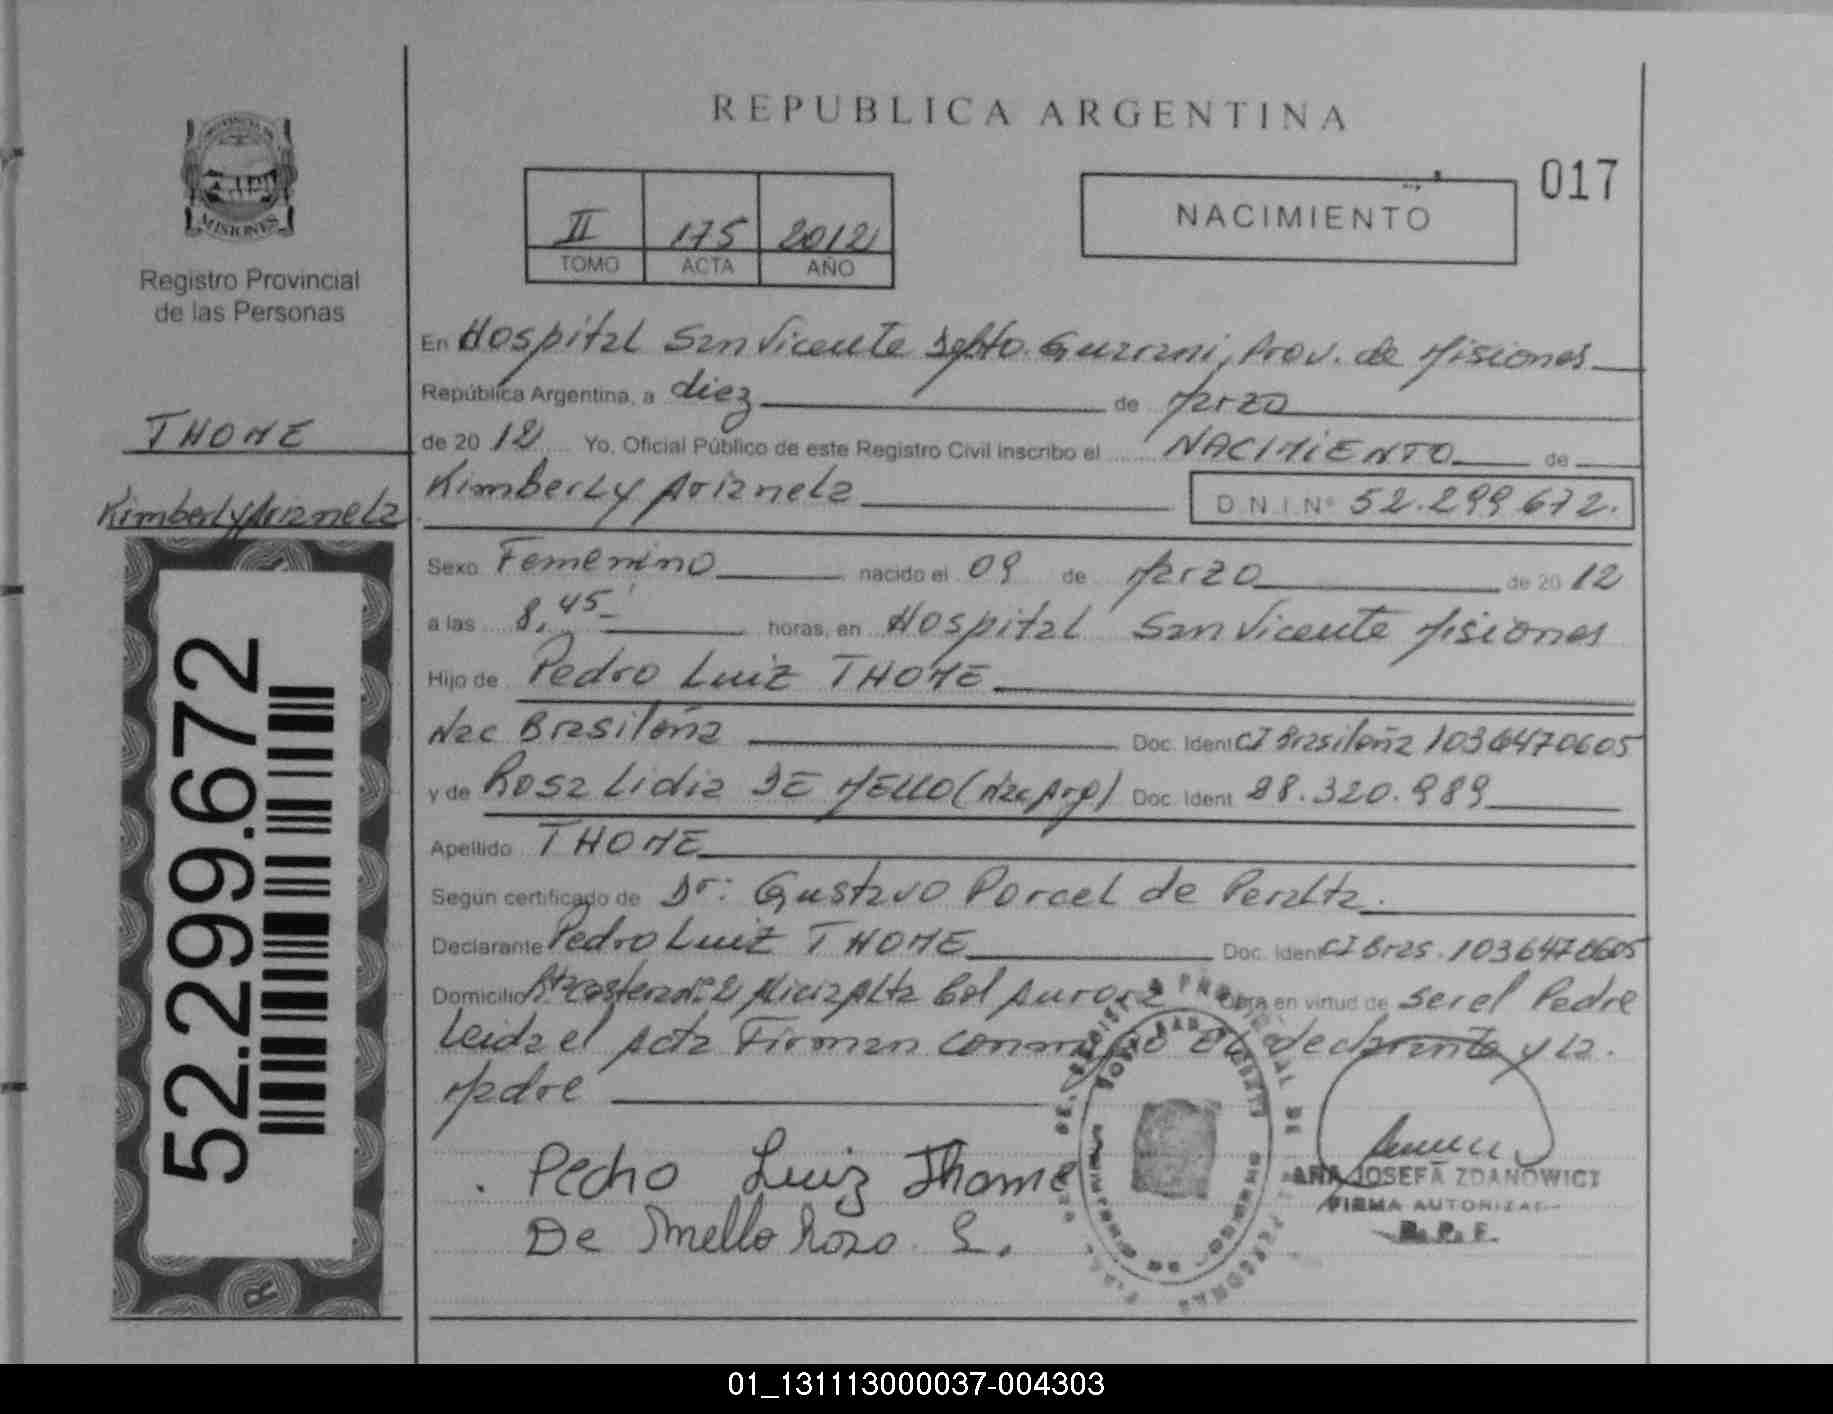 REPUBLICA ARGENTINA
017
NACIMIENTO
II 175 2012
TOMO ACTA AÑO
MISIONES
Registro Provincial
de las Personas
THOME
Kimberly Arianela
52.299.672
R
En Hospital San Vicente Dpto. Guarani, Prov. de Misiones
República Argentina, a diez de Marzo
de 20 12 Yo, Oficial Público de este Registro Civil inscribo el NACIMIENTO de
Kimberly Arianela D.N.I. Nº 52.299.672.
Sexo Femenino nacido el 09 de Marzo de 20 12
a las 8,45 horas, en Hospital San Vicente Misiones
Hijo de Pedro Luiz THOME
Nac Brasileña Doc. Ident CI Brasileña 1036470605
y de Rosa Lidia DE MELLO (Nac Arg) Doc. Ident 28.320.989
Apellido THOME
Según certificado de Dr: Gustavo Porcel de Peralta.
Declarante Pedro Luiz THOME Doc. Ident CI Bras. 1036470605
Domicilio Alicia Alta Col Aurora Obra en virtud de ser el Padre
Leida el Acta Firman conmigo el declarante y la.
Madre
Pedro Luiz Thome
De Mello Rosa L.
ANA JOSEFA ZDANOWICZ
FIRMA AUTORIZADA
R.P.F.
01_131113000037-004303